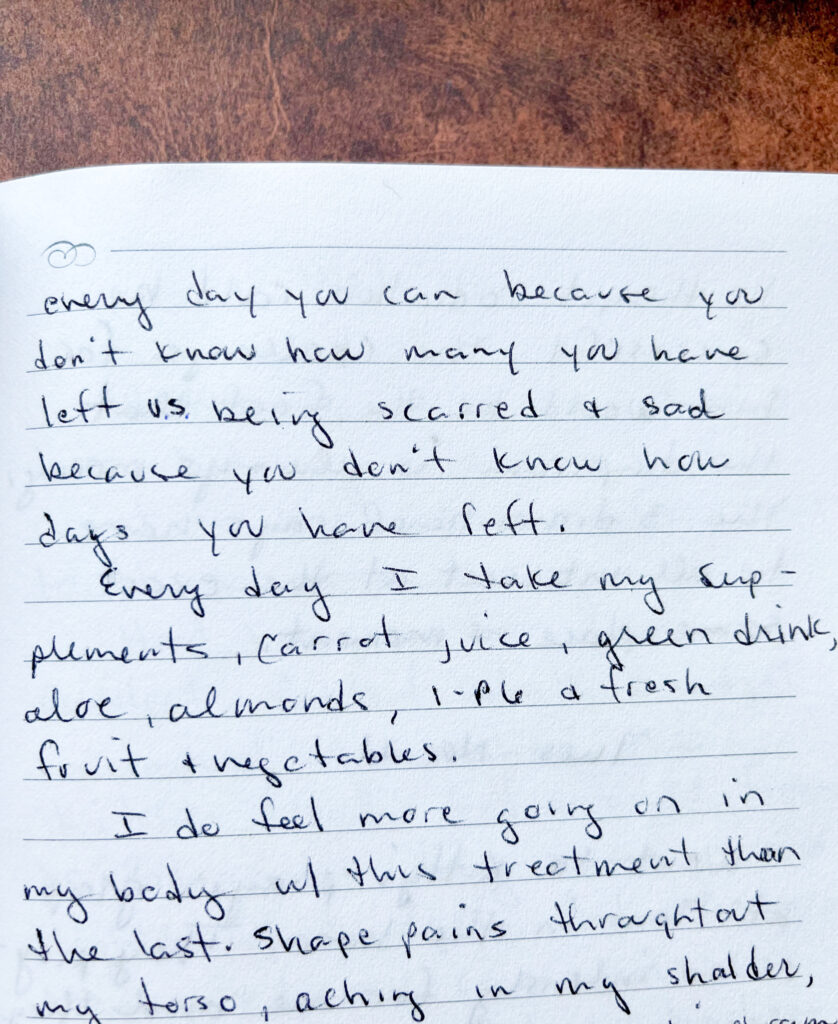 every day you can because you
don't know how many you have
left v.s. being scarred & sad
because you don't know how
days you have left.
Every day I take my sup-
plements, carrot juice, green drink,
aloe, almonds, & fresh
fruit & vegetables.
I do feel more going on in
my body w/ this treatment than
the last. Shape pains throughtout
my torso, aching in my shalder,